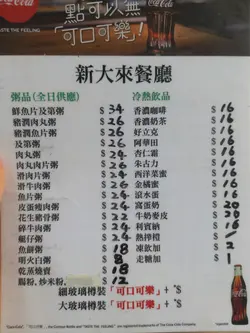 Coca-Cola
TASTE THE FEELING
點可以無
「可口可樂」!
新大來餐廳
粥品(全日供應)
鮮魚片及第粥 $34
豬潤肉丸粥 $26
豬潤魚片粥 $26
及第粥 $26
肉丸粥 $24
肉丸肉片粥 $26
滑肉片粥 $24
滑牛肉粥 $24
魚片粥 $24
皮蛋瘦肉粥 $24
花生豬骨粥 $22
碎牛肉粥 $24
艇仔粥 $24
魚餅粥 $18
明火白粥 $8
乾蒸燒賣 $18
腸粉. 炒米粉. $12
冷熱飲品
香濃咖啡 $16
香濃奶茶 $16
好立克 $16
阿華田 $16
杏仁霜 $16
朱古力 $16
西洋菜蜜 $16
金橘蜜 $16
滾水蛋 $16
窩蛋奶 $20
牛奶麥皮 $20
利賓納 $16
熱檸檬 $16
凍飲加 $2
走糖加 $1
細玻璃樽裝「可口可樂」+ $5
大玻璃樽裝「可口可樂」+